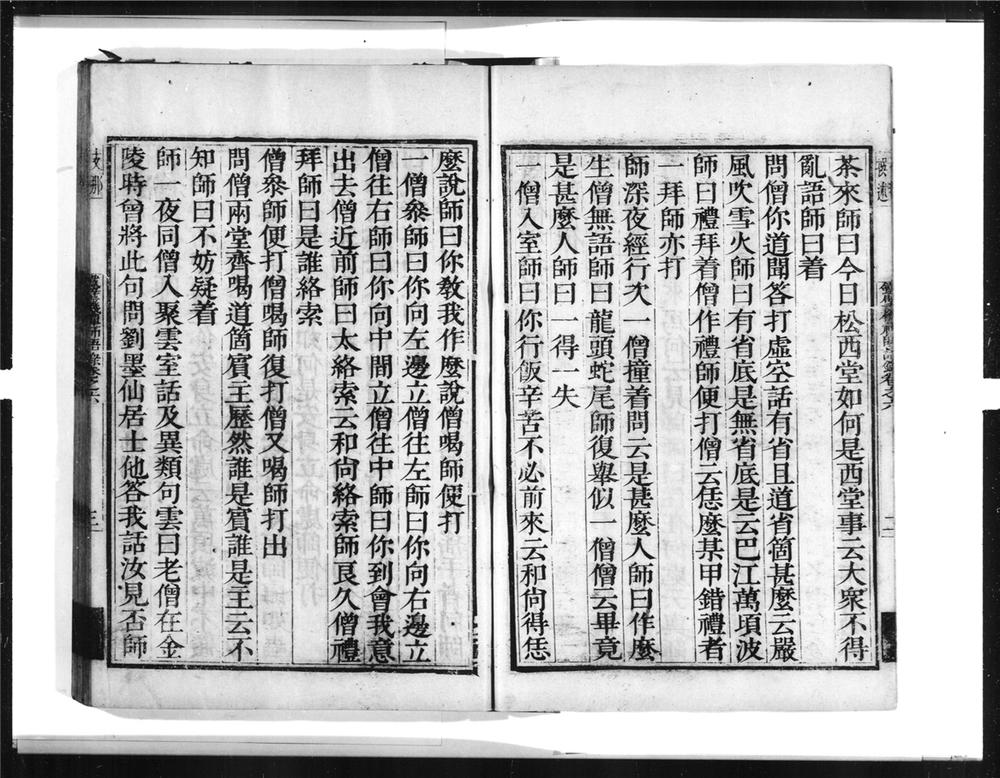 茶來師曰今日松西堂如何是西堂事云大衆不得
亂語師曰着
問僧你道聞答打虛空話有省且道省箇甚麼云嚴
風吹雪火師曰有省底是無省底是云巴江萬頃波
師曰禮拜着僧作禮師便打僧云恁麼某甲錯禮者
一拜師亦打
師深夜經行次一僧撞着問云是甚麼人師曰作麼
生僧無語師曰龍頭蛇尾師復舉似一僧僧云畢竟
是甚麼人師曰一得一失
一僧入室師曰你行飯辛苦不必前來云和尙得恁
麼說師曰你敎我作麼說僧喝師便打
一僧叅師曰你向左邊立僧往左師曰你向右邊立
僧往右師曰你向中間立僧往中師曰你到會我意
出去僧近前師曰太絡索云和尙絡索師良久僧禮
拜師曰是誰絡索
僧叅師便打僧喝師復打僧又喝師打出
問僧兩堂齊喝道箇賓主歷然誰是賓誰是主云不
知師曰不妨疑着
師一夜同僧入聚雲室話及異類句雲曰老僧在金
陵時曾將此句問劉墨仙居士他答我話汝見否師